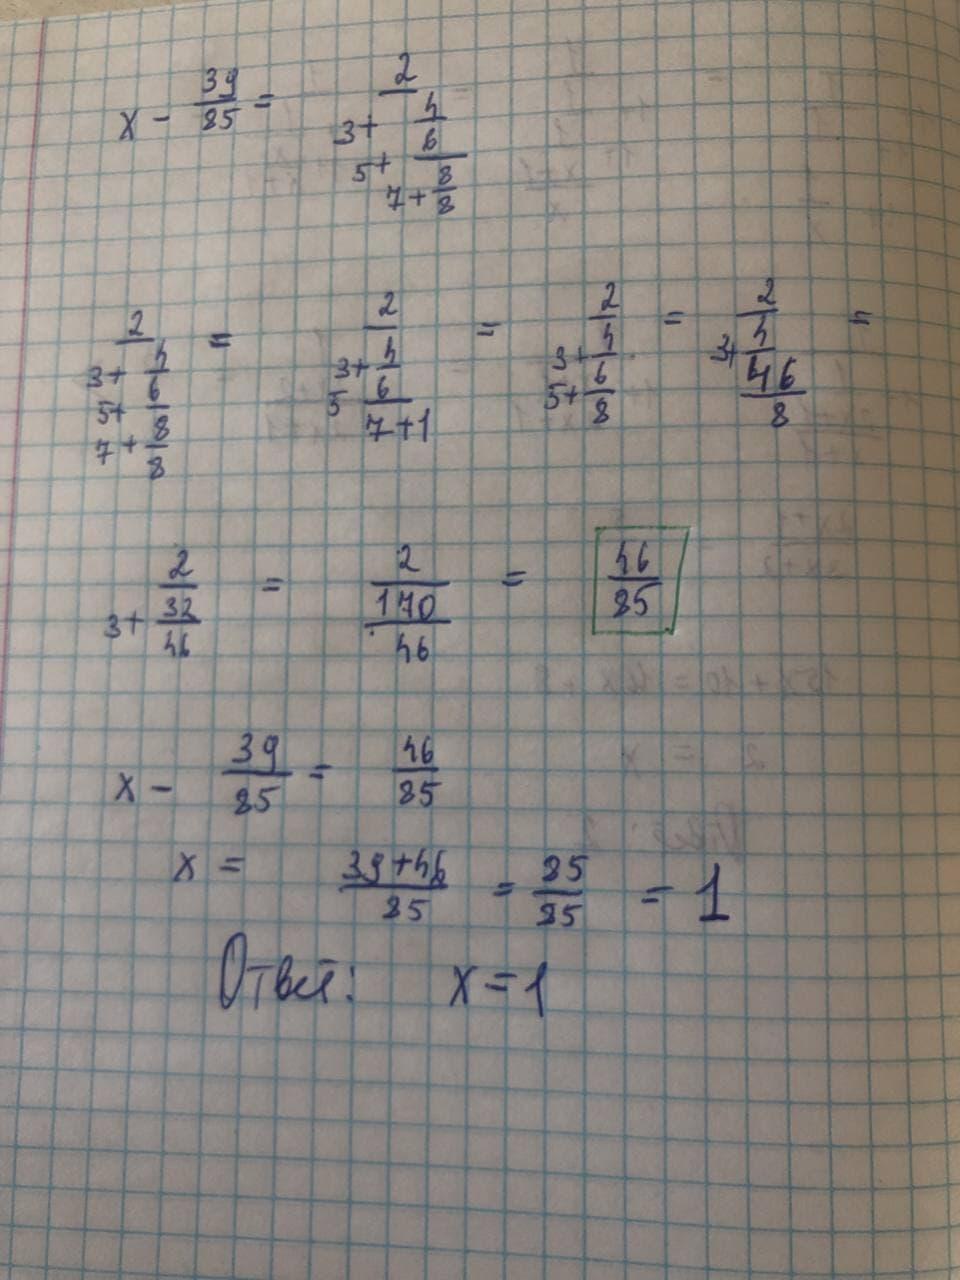 x - 39/85 = 2/(3 + 4/(5 + 6/(7 + 8/8)))
2/(3 + 4/(5 + 6/(7 + 8/8))) = 2/(3 + 4/(5 6/(7 + 1))) = 2/(3 + 4/(5 + 6/8)) = 2/(3 + 4/(46/8)) =
2/(3 + 32/46) = 2/(170/46) = 46/85
x - 39/85 = 46/85
x = (39 + 46)/85 = 85/85 = 1
Ответ: x = 1